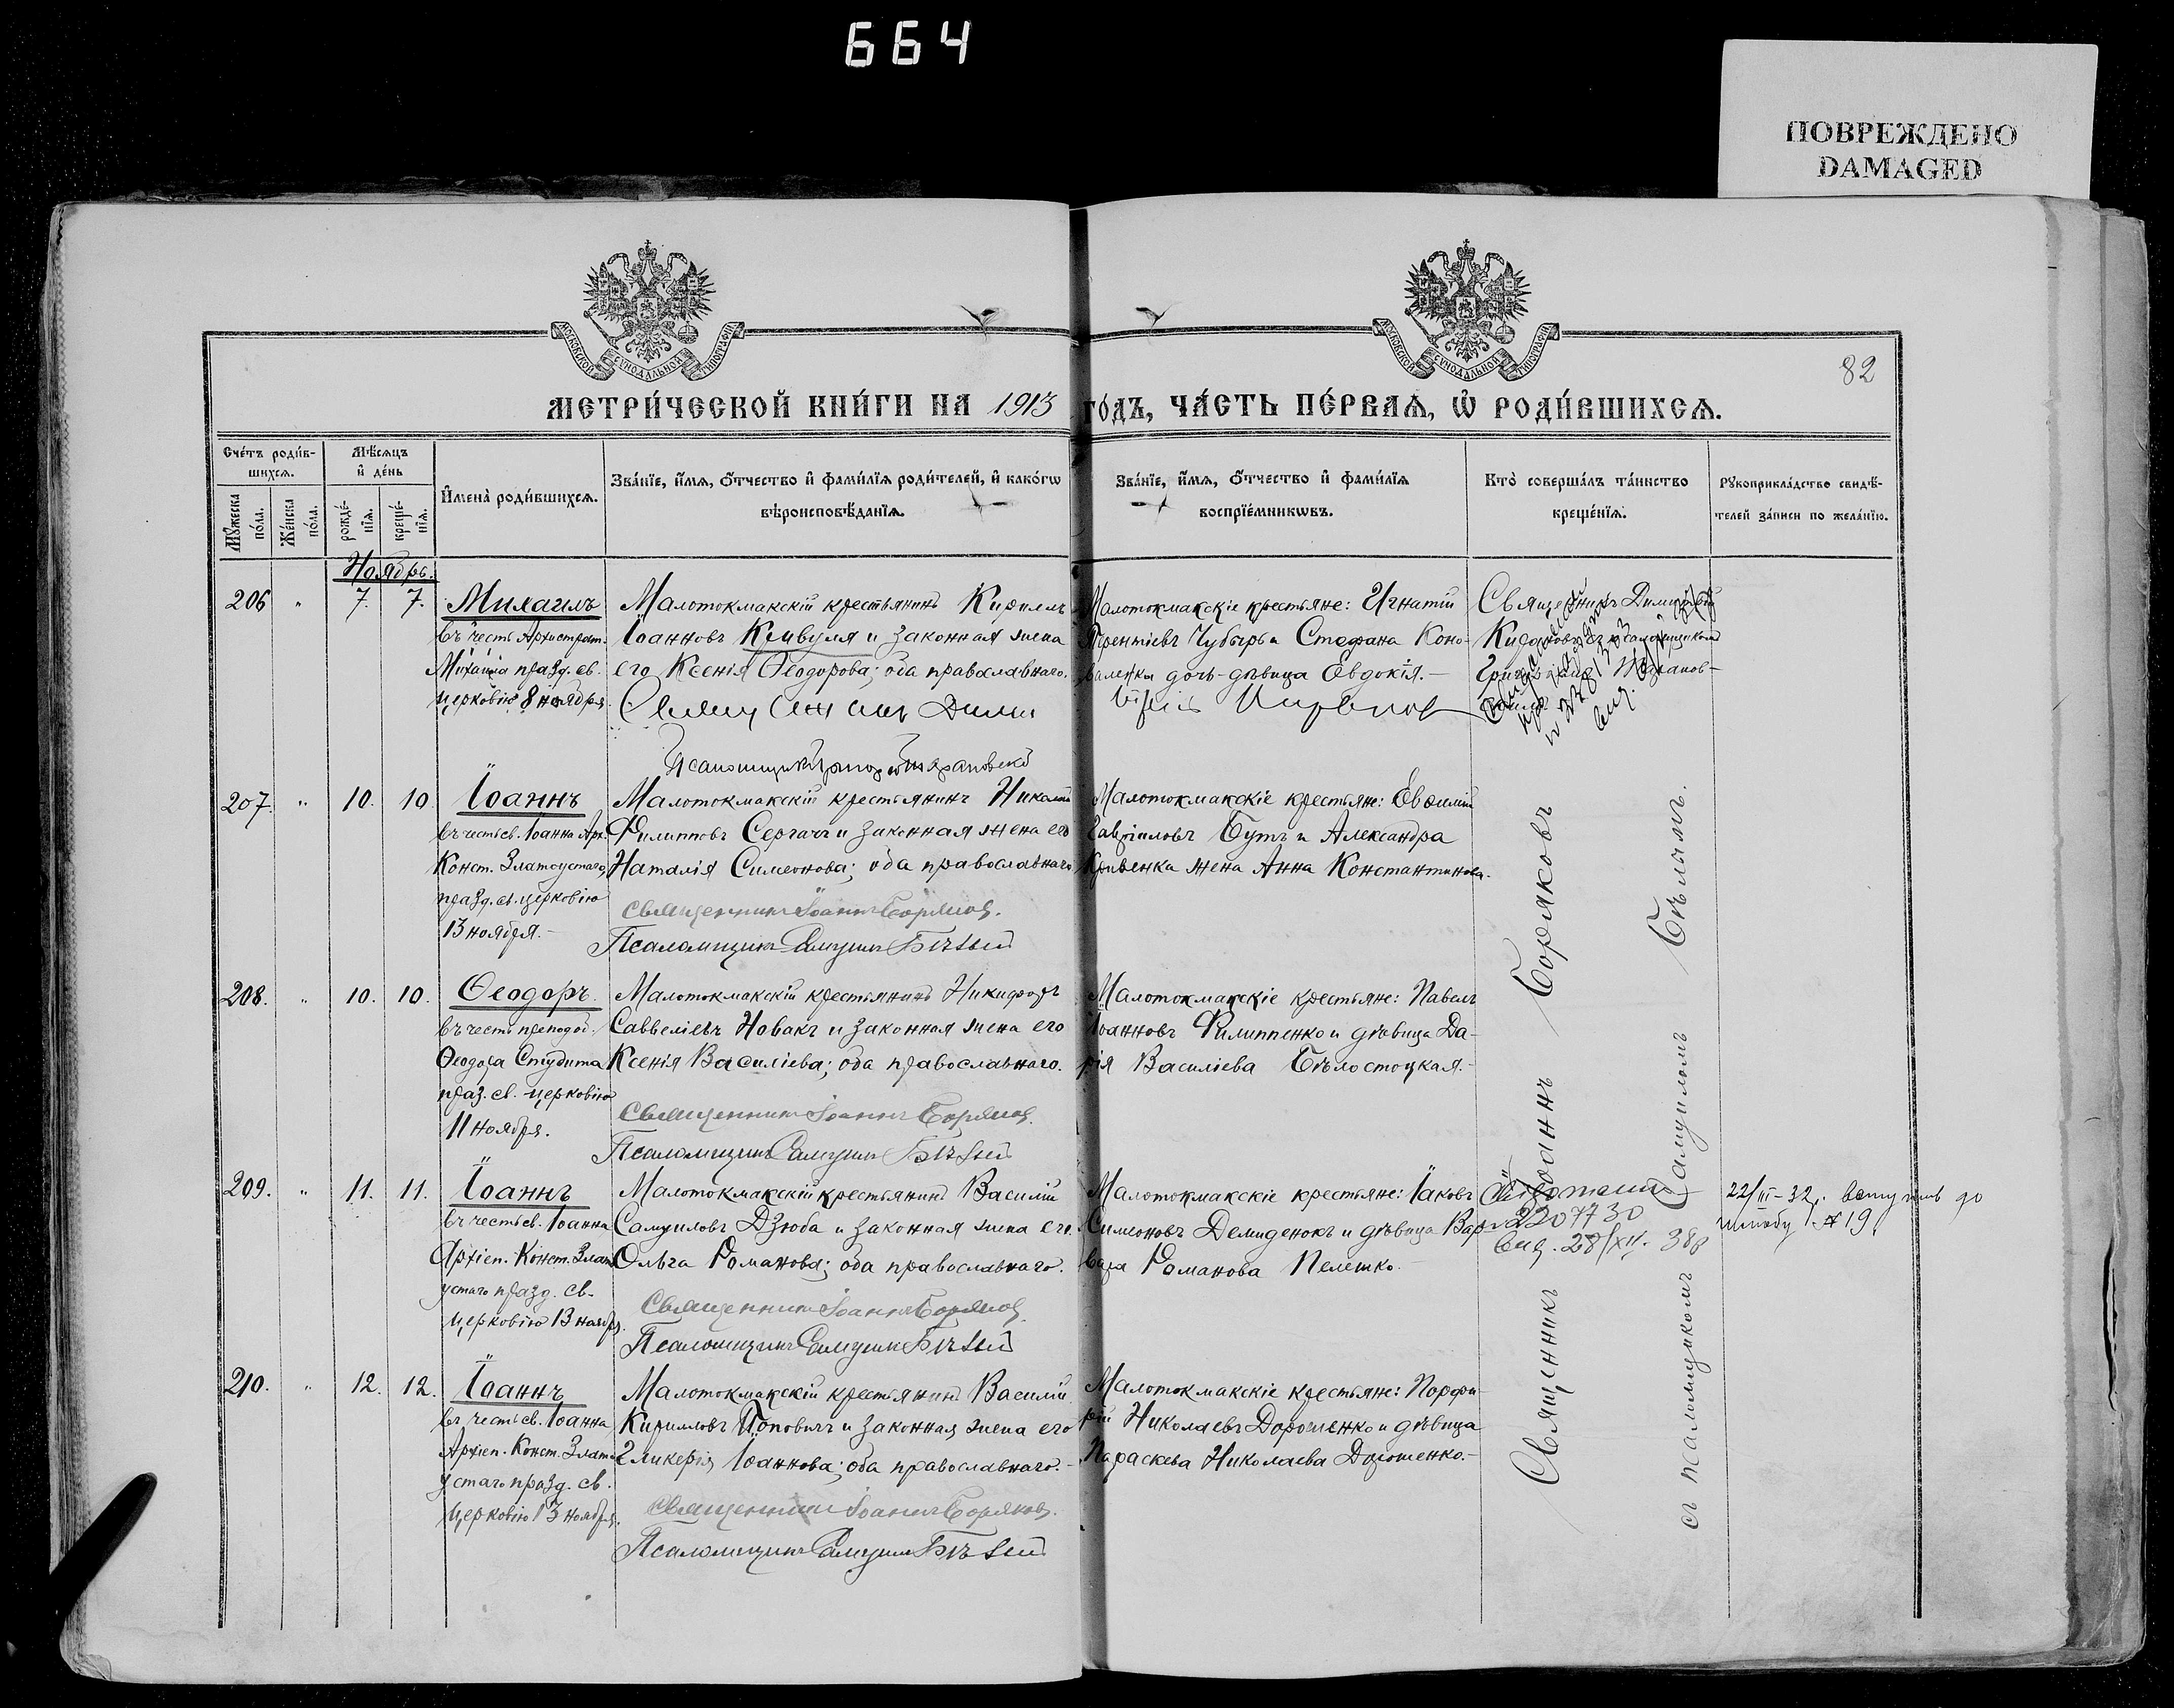 664
ПОВРЕЖДЕНО
DAMAGED
МОСКОВСКОЙ СѴНОДАЛЬНОЙ ТИПОГРАФІИ
МОСКОВСКОЙ СѴНОДАЛЬНОЙ ТИПОГРАФІИ
82
МЕТРИ́ЧЕСКОЙ КНИ́ГИ НА 1913 ГО́ДЪ, ЧА́СТЬ ПЕ́РВАѦ, Ѡ҆ РОДИ́ВШИХСѦ.
Сче́тъ роди́в-
шихсѧ.
Мѣ́сѧцъ
и҆ де́нь
Мꙋ́жеска по́ла.
Же́нска по́ла.
рожде́-
нїѧ.
креще́-
нїѧ.
И҆мена̀ роди́вшихсѧ.
Зва́нїе, и҆́мѧ, ѻ҆́тчество и҆ фами́лїѧ роди́телей, и҆ како́гѡ
вѣроисповѣ́данїѧ.
Зва́нїе, и҆́мѧ, ѻ҆́тчество и҆ фами́лїѧ
воспрїе́мникѡвъ.
Кто̀ соверша́лъ та́инство
креще́нїѧ.
Рꙋкоприкла́дство свидѣ́-
телей за́писи по жела́нїю.
Ноябрь.
206 " 7. 7. Михаилъ
въ честь Архистрат.
Михаила празд. св.
церковію 8 ноября.
Малотокмакскій крестьянинъ Кириллъ
Іоанновъ Кривуля и законная жена
его Ксенія Ѳеодорова; оба православнаго.
Малотокмакскіе крестьяне: Игнатій
Терентіевъ Чубырь и Стефана Коно-
валенка дочь-дѣвица Евдокія.-
Священникъ Димитрій
Псаломщикъ Григорій
207. " 10. 10. Іоаннъ
въ честь св. Іоанна Арх.
Конст. Златоустаго,
празд. св. церковію
13 ноября.-
Малотокмакскій крестьянинъ Николай
Филипповъ Сергачъ и законная жена его
Наталія Симеонова; оба православнаго
Священникъ Іоаннъ Боряковъ.
Псаломщикъ Самуилъ Бѣлый
Малотокмакскіе крестьяне: Евѳимій
Гавріиловъ Бутъ и Александра
Кривенка жена Анна Константинова.
208. " 10. 10. Ѳеодоръ.
въ честь преподоб.
Ѳеодора Студита
праз. св. церковію
11 ноября.
Малотокмакскій крестьянинъ Никифоръ
Саввеліевъ Новакъ и законная жена его
Ксенія Василіева; оба православнаго.
Священникъ Іоаннъ Боряковъ.
Псаломщикъ Самуилъ Бѣлый
Малотокмакскіе крестьяне: Павелъ
Іоанновъ Филиппенко и дѣвица Да-
рія Василіева Бѣлостоцкая.-
209. " 11. 11. Іоаннъ
въ честь св. Іоанна
Архіеп. Конст. Злато
устаго празд. св.
церковію 13 ноября.
Малотокмакскій крестьянинъ Василій
Самуиловъ Дзюба и законная жена его
Ольга Романова; оба православнаго.
Священникъ Іоаннъ Боряковъ
Псаломщикъ Самуилъ Бѣлый
Малотокмакскіе крестьяне: Іаковъ
Симеоновъ Демиденокъ и дѣвица Вар-
вара Романова Пелешко.-
2207730
выд. 28/XII. 38р
22/III-32
№ 19
210. " 12. 12. Іоаннъ
въ честь св. Іоанна
Архіеп. Конст. Злато
устаго празд. св.
церковію 13 ноября.
Малотокмакскій крестьянинъ Василій
Кирилловъ Поповичъ и законная жена его
Гликерія Іоаннова; оба православнаго.-
Священникъ Іоаннъ Боряковъ.
Псаломщикъ Самуилъ Бѣлый
Малотокмакскіе крестьяне: Порфи-
рій Николаевъ Дорошенко и дѣвица
Параскева Николаева Дорошенко.-
Священникъ Іоаннъ Боряковъ
съ псаломщикомъ Самуиломъ Бѣлымъ.